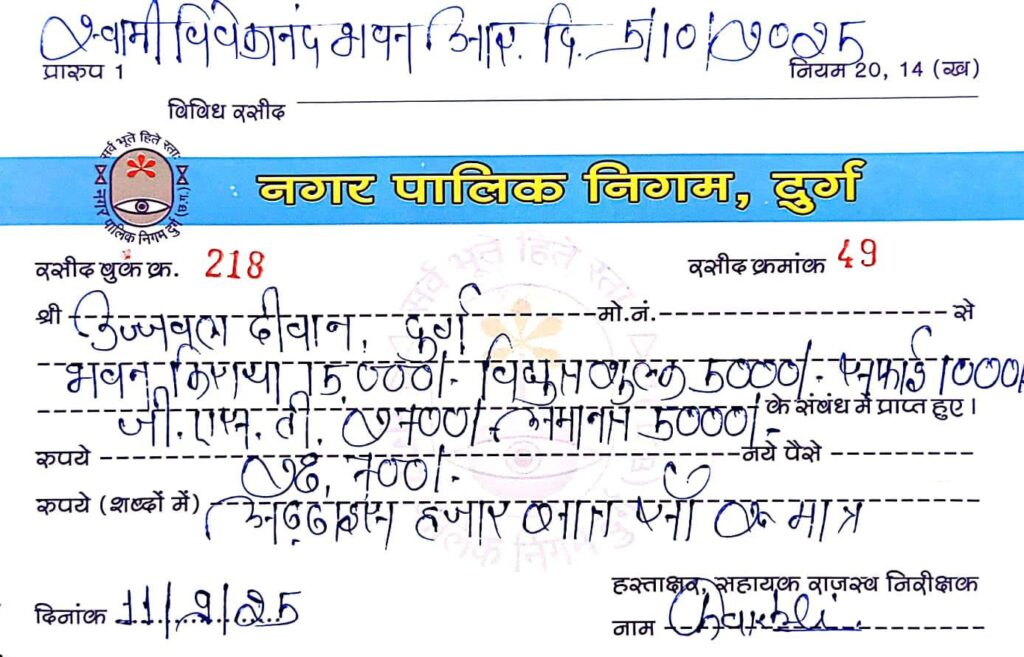 स्वामी विवेकानंद भवन आर. दि. 5/10/2025
प्रारुप 1 नियम 20, 14 (ख)
विविध रसीद
सर्व भूते हिते रताः
नगर पालिक निगम दुर्ग (छ.ग.)
नगर पालिक निगम, दुर्ग
रसीद बुक क्र. 218 रसीद क्रमांक 49
श्री उज्जवल दीवान, दुर्ग मो.नं. से
भवन किराया 15,000/- विद्युत शुल्क 5000/- सफाई 1000/
जी.एस.टी. 2700/- अमानत 5000/- के संबंध में प्राप्त हुए।
रुपये 28,700/- नये पैसे
रुपये (शब्दों में) अट्ठाइस हजार सात सौ रू मात्र
हस्ताक्षर, सहायक राजस्व निरीक्षक
दिनांक 11/9/25 नाम